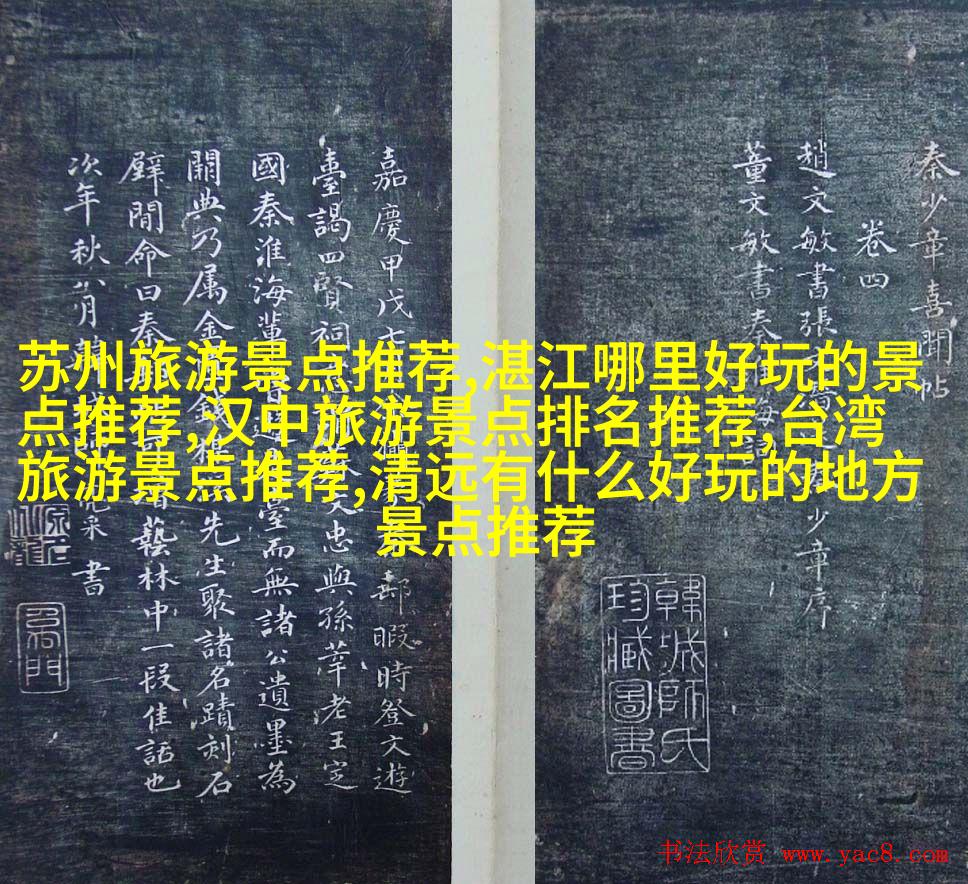 苏州旅游景点推荐,湛江哪里好玩的景
点推荐,汉中旅游景点排名推荐,台湾
旅游景点推荐,清远有什么好玩的地方
景点推荐
秦少章喜聞帖
卷四
趙文敏書張 少章序
董文敏書秦淮海詞
韓城師氏
珍臧圖書
嘉慶甲戊七 郵暇時登文遊
臺謁四賢祠 文忠與孫莘老王定
國秦淮海 臺而無諸公遺墨為
闕典乃属金 錢 先生聚諸名蹟刻石
壁間命曰秦 藝林中一段佳話也
次年秋八月韓城師亮采書
书法欣赏 www.yac8.com